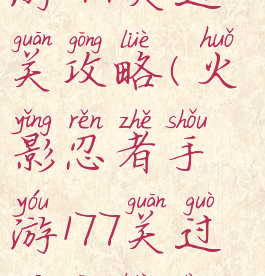 guān gōng lüè huǒ
关攻略(火
yǐng rěn zhě shǒu
影忍者手
yóu guān guò
游177关过